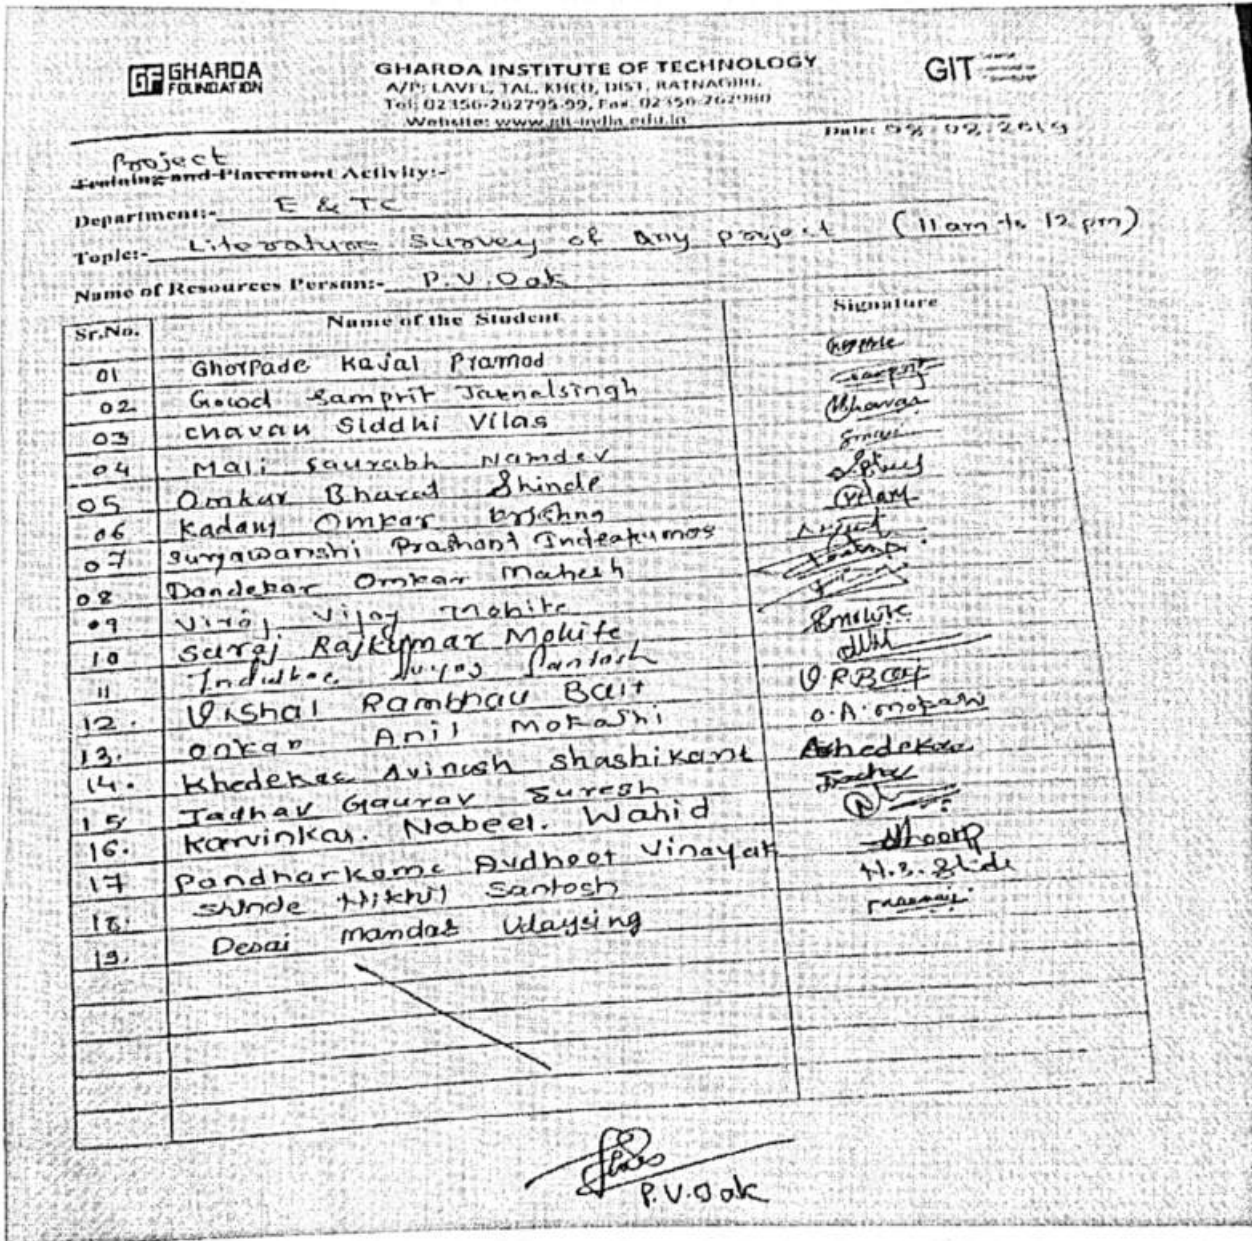 GF GHARDA
FOUNDATION
GHARDA INSTITUTE OF TECHNOLOGY
A/P: LAVEL, TAL. KHED, DIST. RATNAGIRI.
Tel: 02356-262795-99, Fax: 02356-262980
Website: www.git-india.edu.in
GIT
Date: 08.02.2019
Project
Training and Placement Activity:-
Department:- E & TC
Topic:- Literature Survey of any project (11am to 12 pm)
Name of Resources Person:- P.V.Oak
Sr.No. Name of the Student Signature
01 Ghorpade Kajal Pramod
02 Gowd Samprit Jarnalsingh
03 Chavan Siddhi Vilas
04 Mali Saurabh Namdev
05 Omkar Bharat Shinde
06 Kadam Omkar
07 Suryawanshi Prashant
08 Dandekar Omkar Mahesh
09 Viraj Vijay Mohite
10 Suraj Rajkumar Mohite
11 Santosh
12. Vishal Rambhau Bait V R Bait
13. Onkar Anil Mokashi O.A.mokashi
14. Khedekar Avinash Shashikant Akhedekar
15 Jadhav Gaurav Suresh
16. Karvinkar. Nabeel. Wahid
17 Pandharkame Avdhoot Vinayak
18. Shinde Nikhil Santosh
19. Desai Mandar Udaysing
P.V.Oak